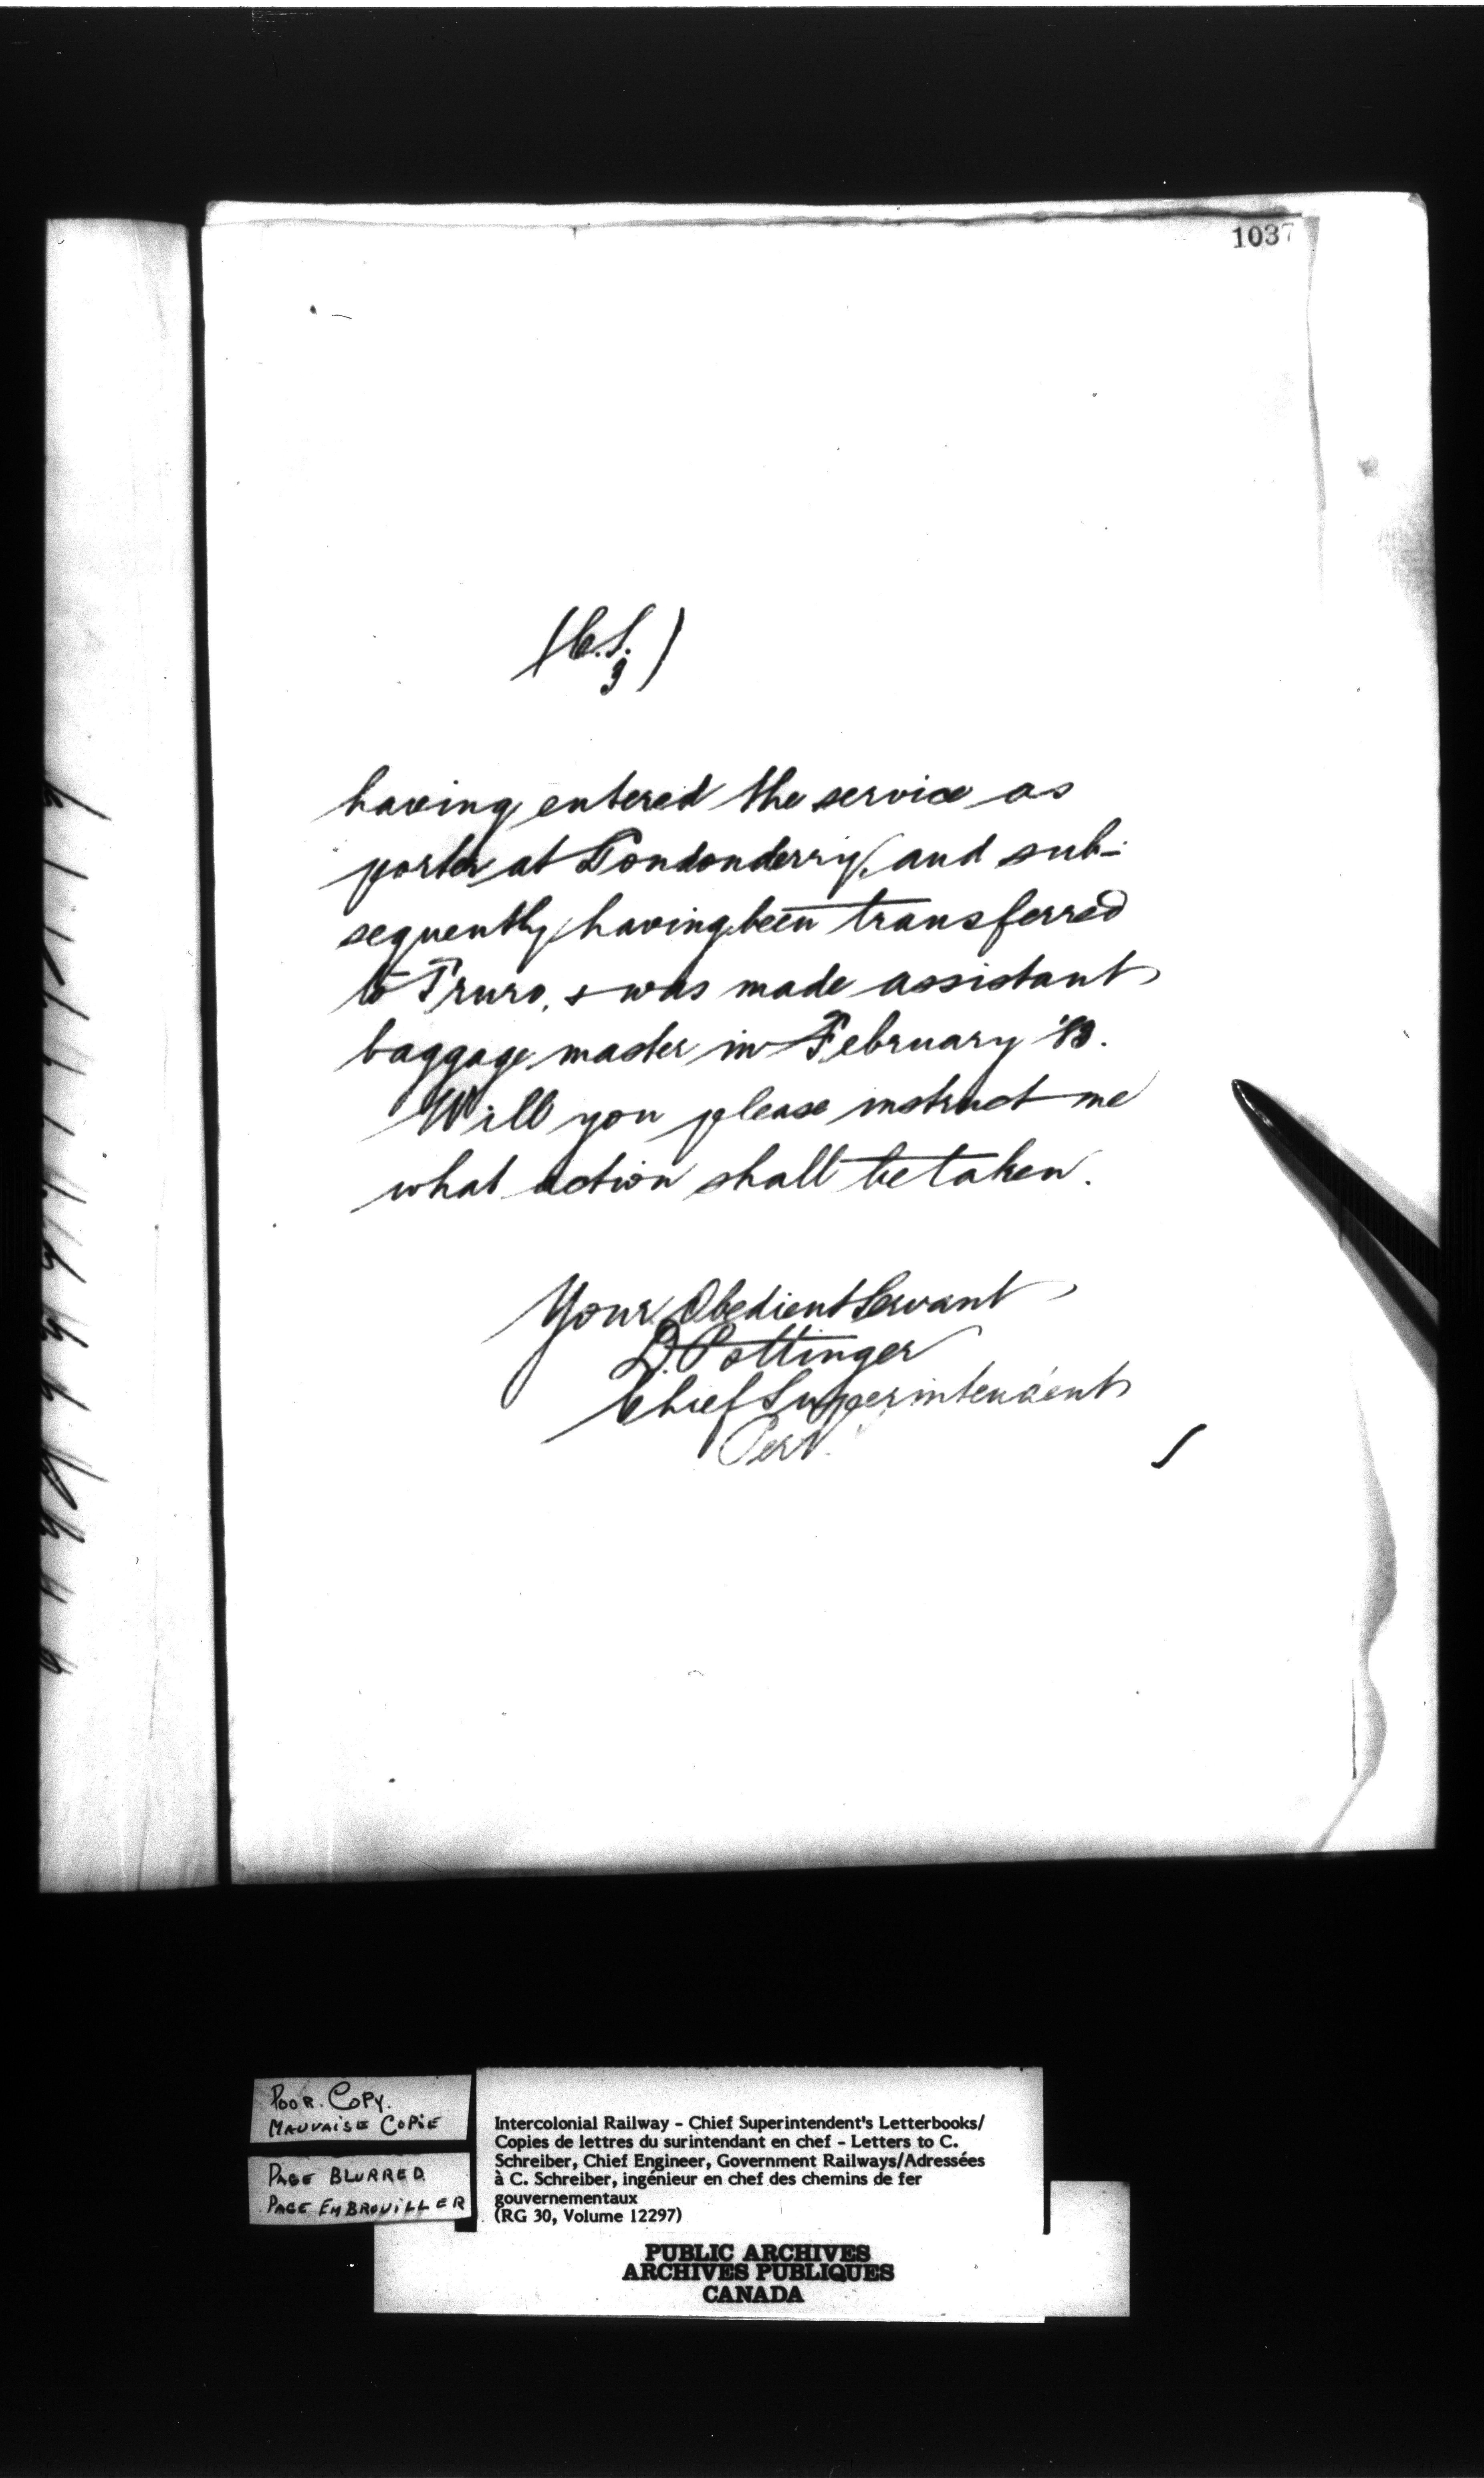 1037
(C.S.
3)
having entered the service as
porter at Londonderry, and sub-
sequently having been transferred
to Truro, & was made assistant
baggage master in February
Will you please instruct me
what action shall be taken.
Your Obedient Servant
D. Pottinger
Chief Superintendent
Per
POOR. COPY.
MAUVAISE COPIE
PAGE BLURRED
PAGE EMBROUILLER
Intercolonial Railway - Chief Superintendent's Letterbooks/
Copies de lettres du surintendant en chef - Letters to C.
Schreiber, Chief Engineer, Government Railways/Adressées
à C. Schreiber, ingénieur en chef des chemins de fer
gouvernementaux
(RG 30, Volume 12297)
PUBLIC ARCHIVES
ARCHIVES PUBLIQUES
CANADA